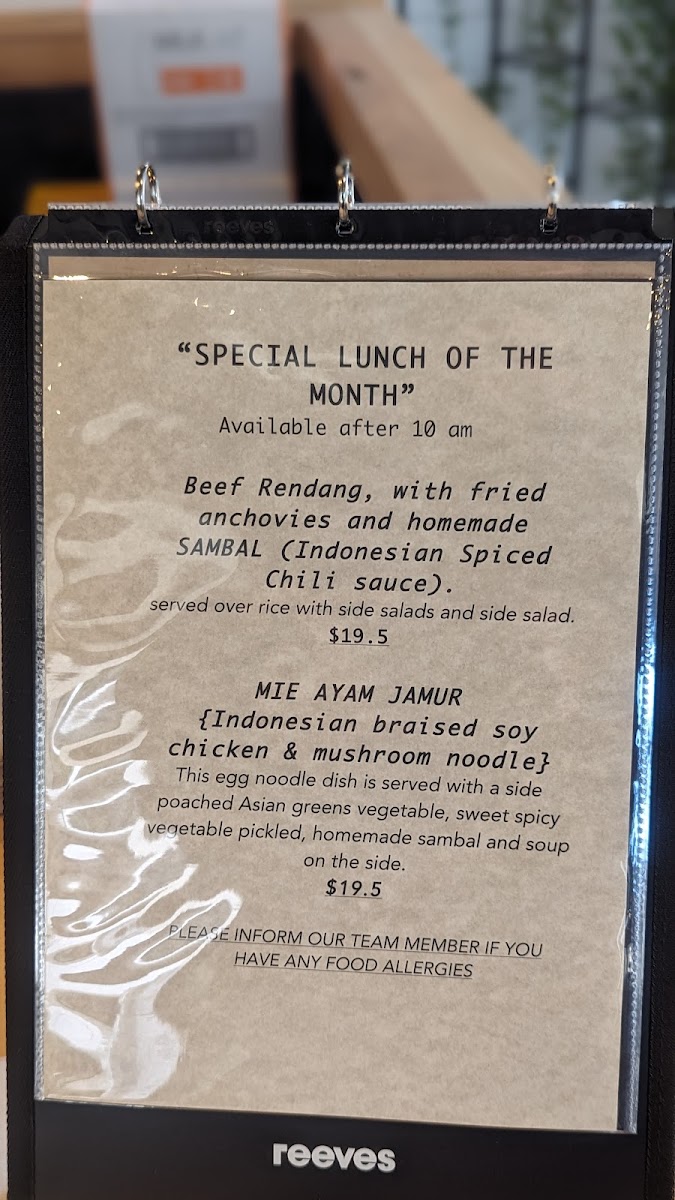 reeves
“SPECIAL LUNCH OF THE
MONTH”
Available after 10 am
Beef Rendang, with fried
anchovies and homemade
SAMBAL (Indonesian Spiced
Chili sauce).
served over rice with side salads and side salad.
$19.5
MIE AYAM JAMUR
{Indonesian braised soy
chicken & mushroom noodle}
This egg noodle dish is served with a side
poached Asian greens vegetable, sweet spicy
vegetable pickled, homemade sambal and soup
on the side.
$19.5
PLEASE INFORM OUR TEAM MEMBER IF YOU
HAVE ANY FOOD ALLERGIES
reeves